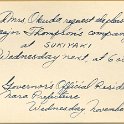 Mrs Okuda request the pleas
Thompson's company
at SUKIYAKI
Wednesday next, at 6
Governor's Official Resid
Nara Prefecture
Wednesday, Novem